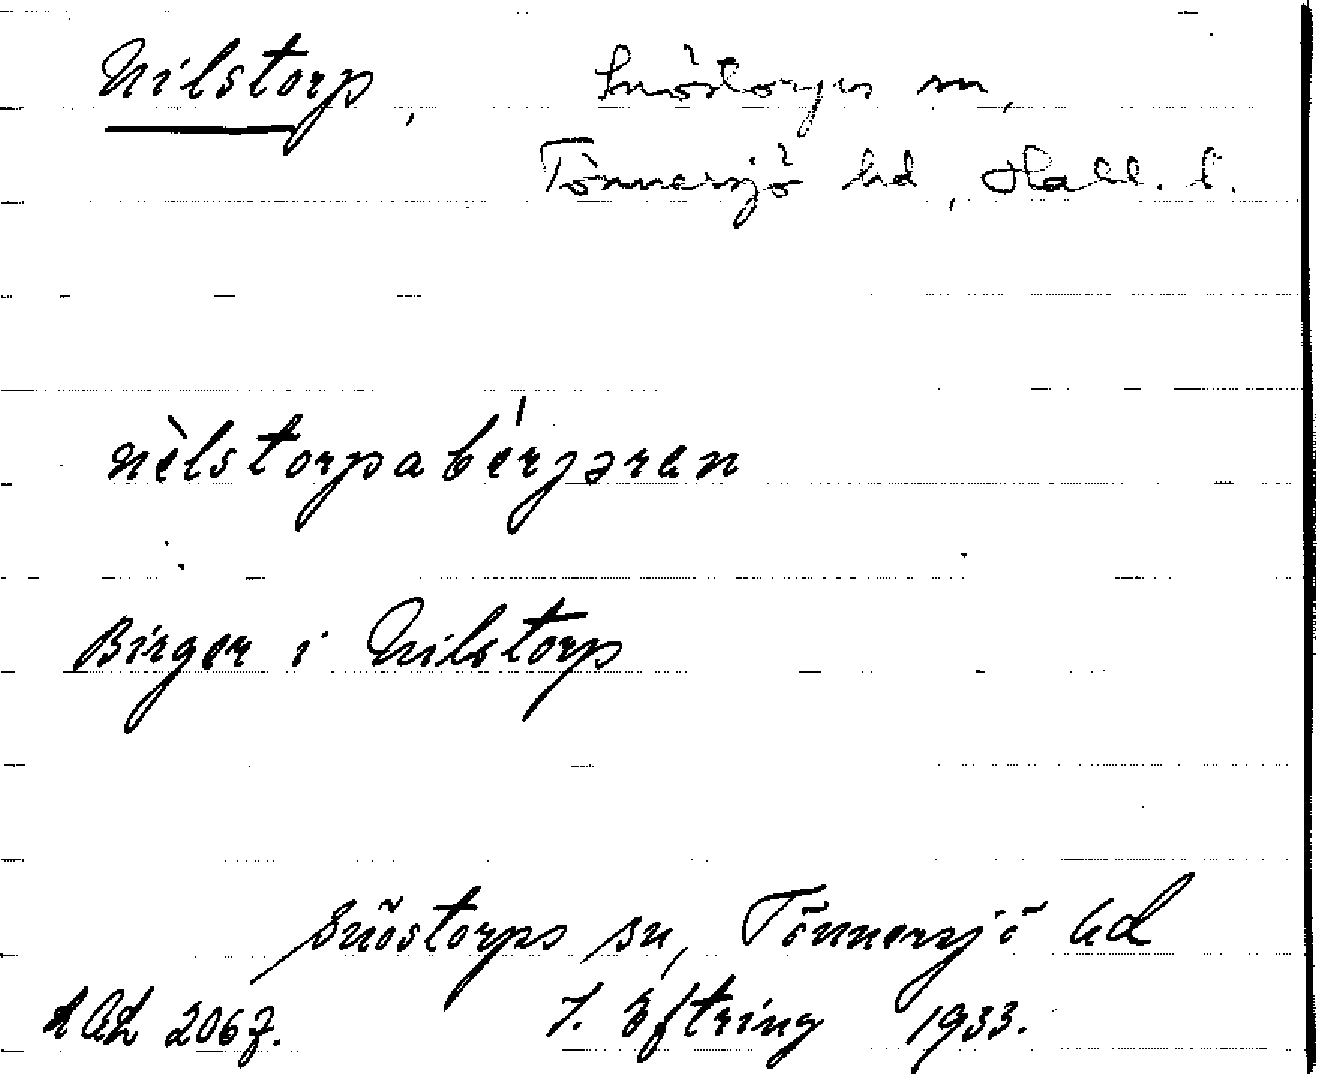 Nilstorp, Snöstorps sn,
Tönnersjö hd, Hall. l.
nèlstorpabérjəren
Birger i Nilstorp
Snöstorps sn, Tönnersjö hd
2067. J. Eftring 1933.